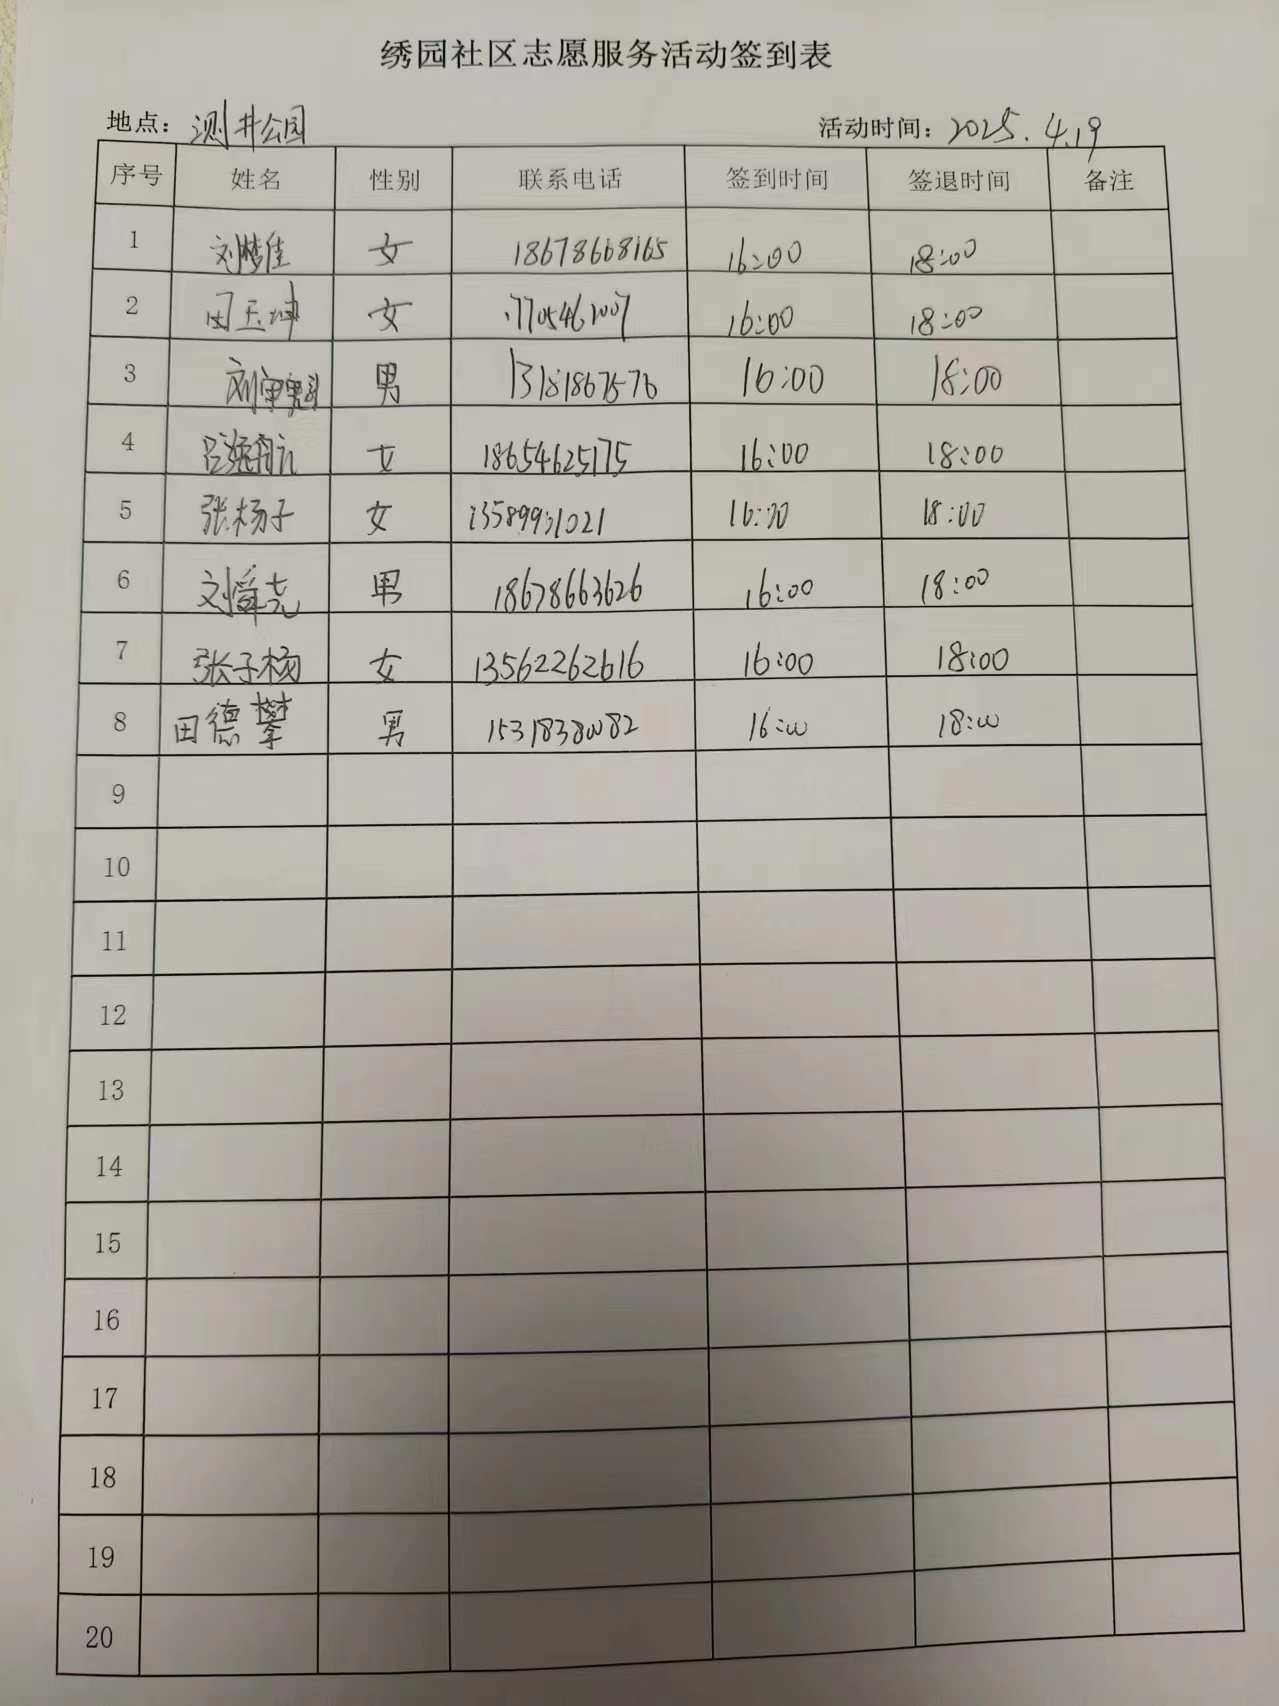 绣园社区志愿服务活动签到表
地点：测井公园 活动时间：2025.4.19
序号 姓名 性别 联系电话 签到时间 签退时间 备注
1 刘梦佳 女 18678668165 16:00 18:00
2 田玉坤 女 16:00 18:00
3 刘 男 13181867576 16:00 18:00
4 吕 女 18654625175 16:00 18:00
5 张杨子 女 13589931021 16:00 18:00
6 刘舜尧 男 18678663626 16:00 18:00
7 张子杨 女 13562262616 16:00 18:00
8 田德攀 男 15318380082 16:00 18:00
9
10
11
12
13
14
15
16
17
18
19
20